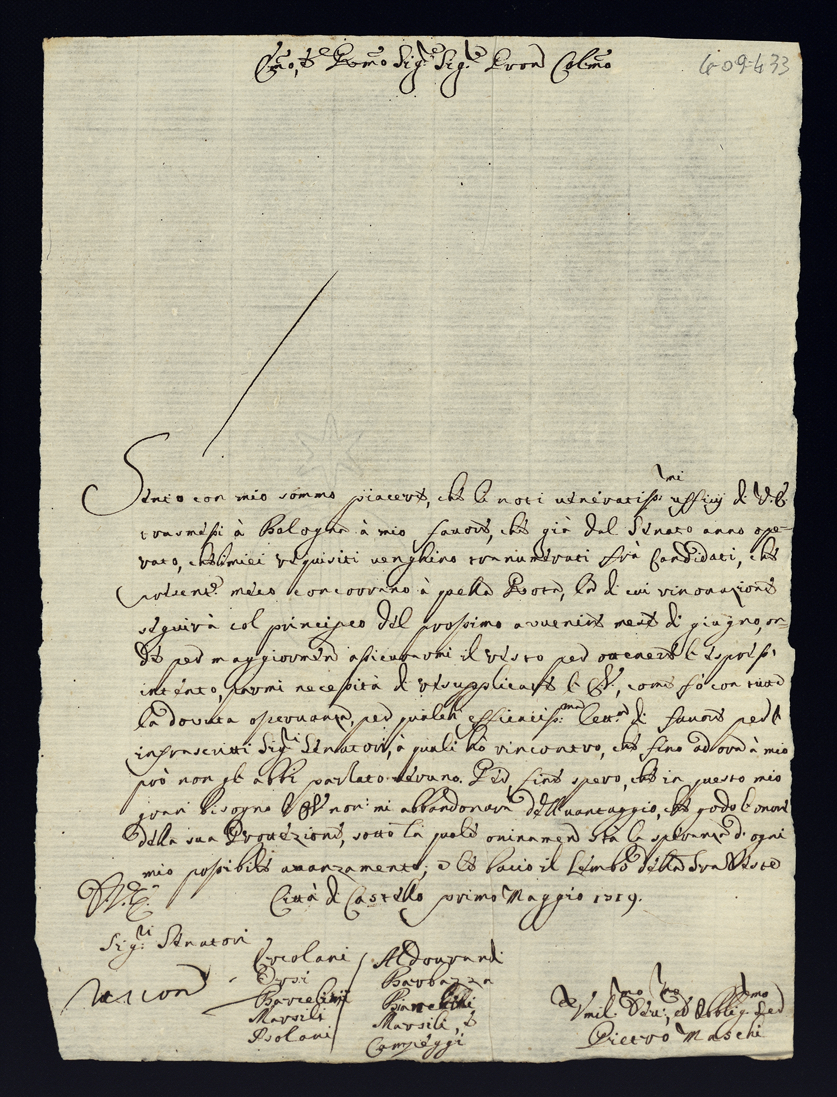 Emo, e Rmo Sig.r Sig.r Pron Colmo
409-433
Sento con mio sommo piacere, che le noti veneratiss.mi ufficij di V.E.
trasmessi à Bologna à mio favore, che già dal Senato anno ope-
rato, che i miei requisiti venghino trannumerati frà Candidati, che
meco concorrano à quella Rota, la di cui rinovazione
seguirà col principio del prossimo avvenire mese di giugno, on-
de per maggiormen assicurarmi il resto per ottenere l'
intento, parmi necessità di risupplicare l' come fo con tutta
la dovuta osservanza, per qualch' efficaciss.ma lett.ra di favore per l'
infrascritti Sig.ri Senatori, à quali hò rincontro, che fino ad ora à mio
prò non gli abbi parlato veruno. spero, che in questo mio
gran bisogno non mi abbandonarà dell'vantaggio, che godo l'onore
della sua Protezione, sotto la quale oninamen stà la speranza d'ogni
mio possibile avanzamento; e le bacio il Lembo della Sra Veste
D.V.E.
Città di Castello primo Maggio 1719.
Sig.ri Senatori
Ercolani
Orsi
Barcelini
Marsili
Isolani
Aldourandi
Barbazza
Bianchini
Marsili, e
Campeggi
Vmil.mo Obblig.mo Sed
Pietro Maschi